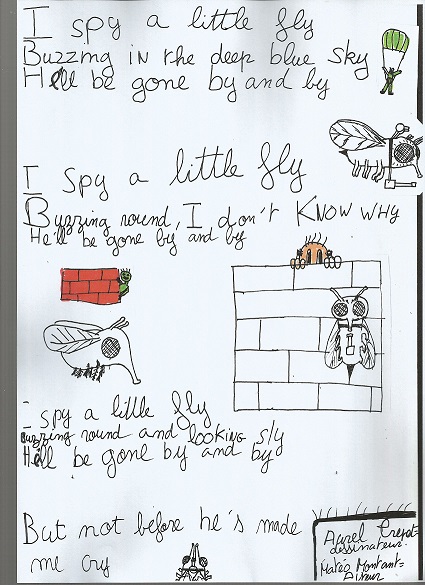 I spy a little fly
Buzzing in the deep blue sky
He'll be gone by and by
I spy a little fly
Buzzing round, I don't KNOW WHY
He'll be gone by and by
I spy a little fly
Buzzing round and looking sly
He'll be gone by and by
But not before he's made
me cry
Aurel
dessinateur
Matéo